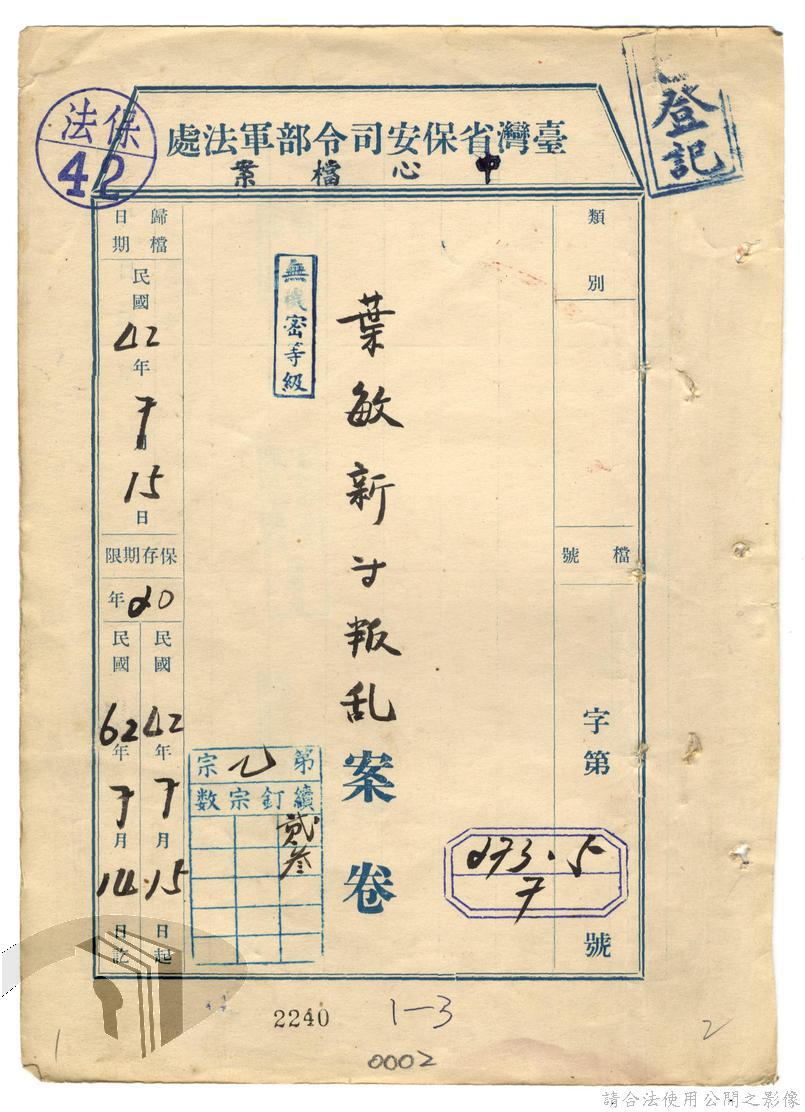 保法
42
登記
臺灣省保安司令部軍法處
中心檔案
類別
檔號
字第
273.5
7
號
葉敏新等叛乱
案卷
無機密等級
歸檔日期
民國42年7月15日
保存期限
20年
民國42年7月15日起
民國62年7月14日訖
第乙宗
續釘宗数
貳
叁
2240
1-3
0002
1
2
請合法使用公開之影像